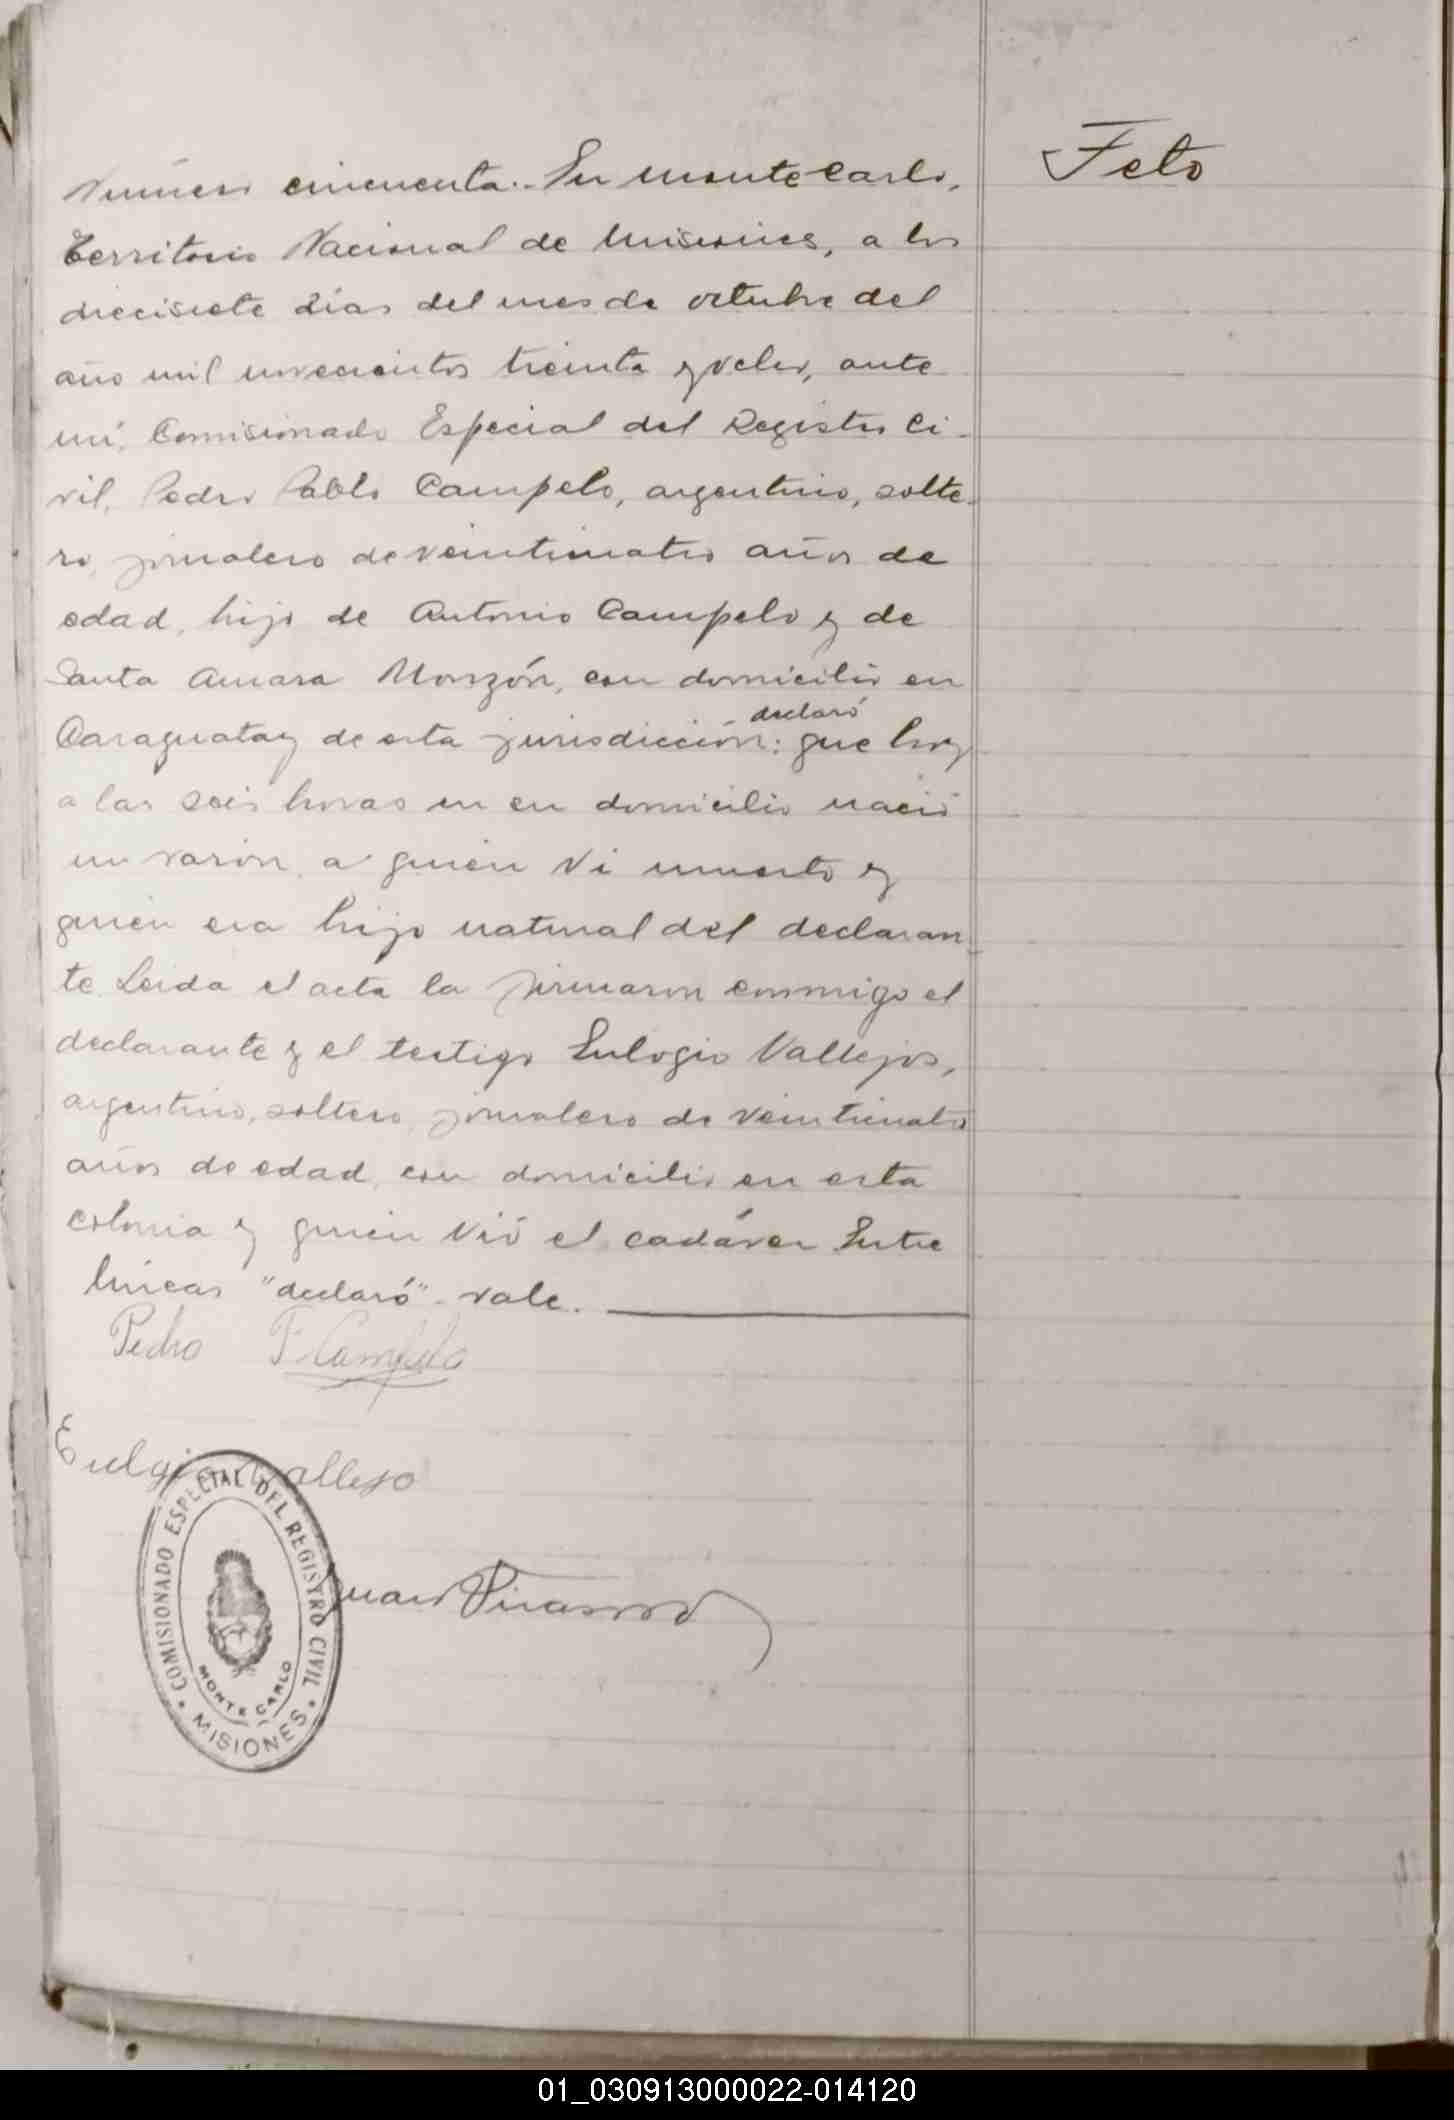 Número cincuenta.- En Monte Carlo,
Feto
Territorio Nacional de Misiones, a los
diecisiete dias del mes de octubre del
año mil novecientos treinta y ocho, ante
mi, Comisionado Especial del Registro Ci-
vil, Pedro Pablo Campelo, argentino, solte-
ro, jornalero de veinticuatro años de
edad, hijo de Antonio Campelo y de
Santa Amara Monzón, con domicilio en
Caraguatay de esta jurisdicción: declaró que hoy
a las seis horas en su domicilio nació
un varón, a quien vi muerto y
quien era hijo natural del declaran-
te. Leida el acta la firmaron conmigo el
declarante y el testigo Eulogio Vallejos,
argentino, soltero, jornalero de veinticuatro
años de edad, con domicilio en esta
colonia y quien vió el cadáver. Entre
lineas "declaró" - vale.
Pedro P Campelo
Eulogio Vallejo
COMISIONADO ESPECIAL DEL REGISTRO CIVIL
MONTE CARLO
MISIONES
Juan
01_030913000022-014120